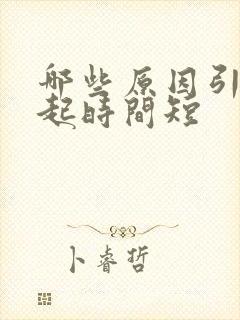 哪些原因引
起時間短
卜睿哲